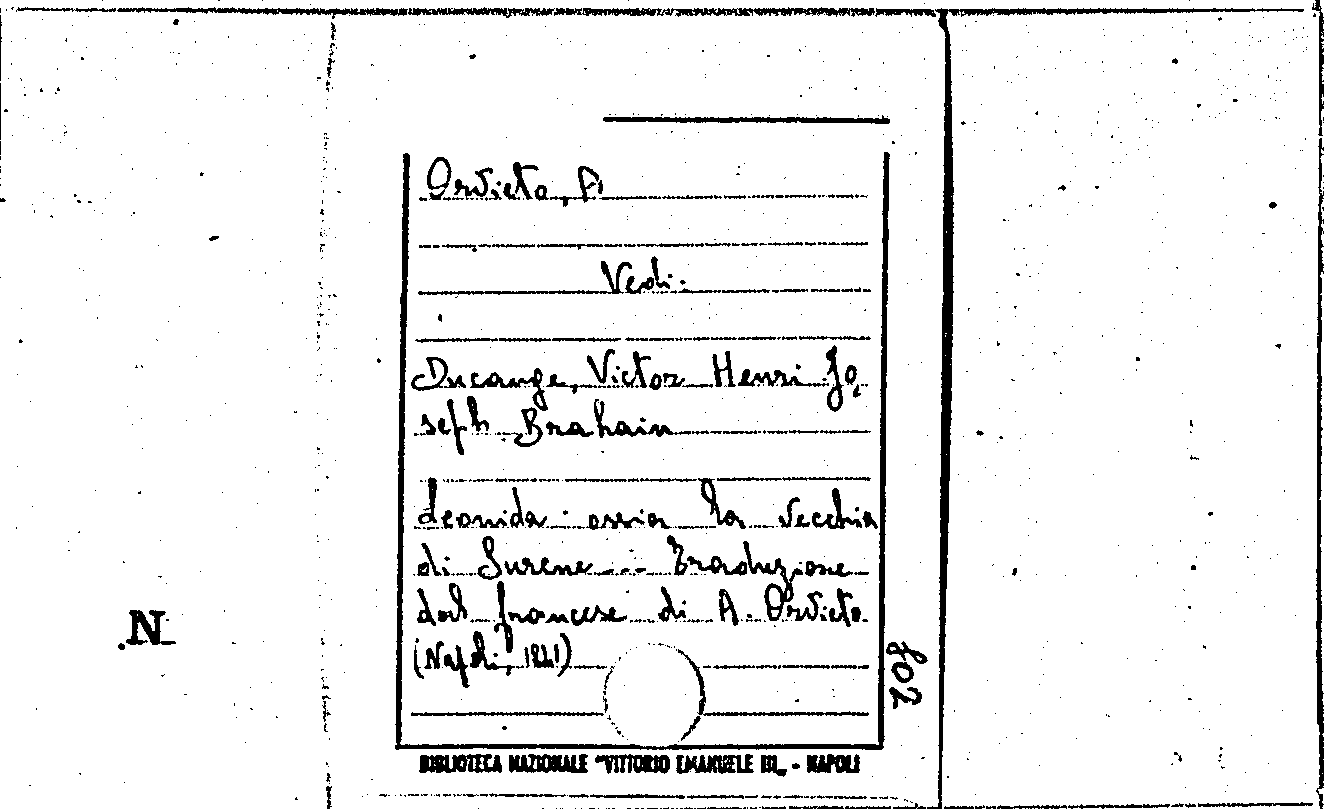 Orvieto, A
Vedi:
Ducange, Victor Henri Jo,
seph Brahain
Leonida ossia la vecchia
di Surene ... Traduzione
dal francese di A. Orvieto
(Napoli, 1841)
802
N
BIBLIOTECA NAZIONALE "VITTORIO EMANUELE III„ - NAPOLI